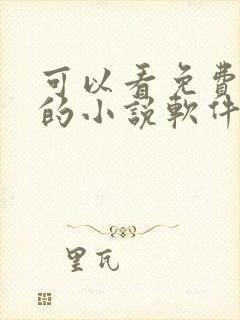 可以看免費
的小說軟件
里瓦